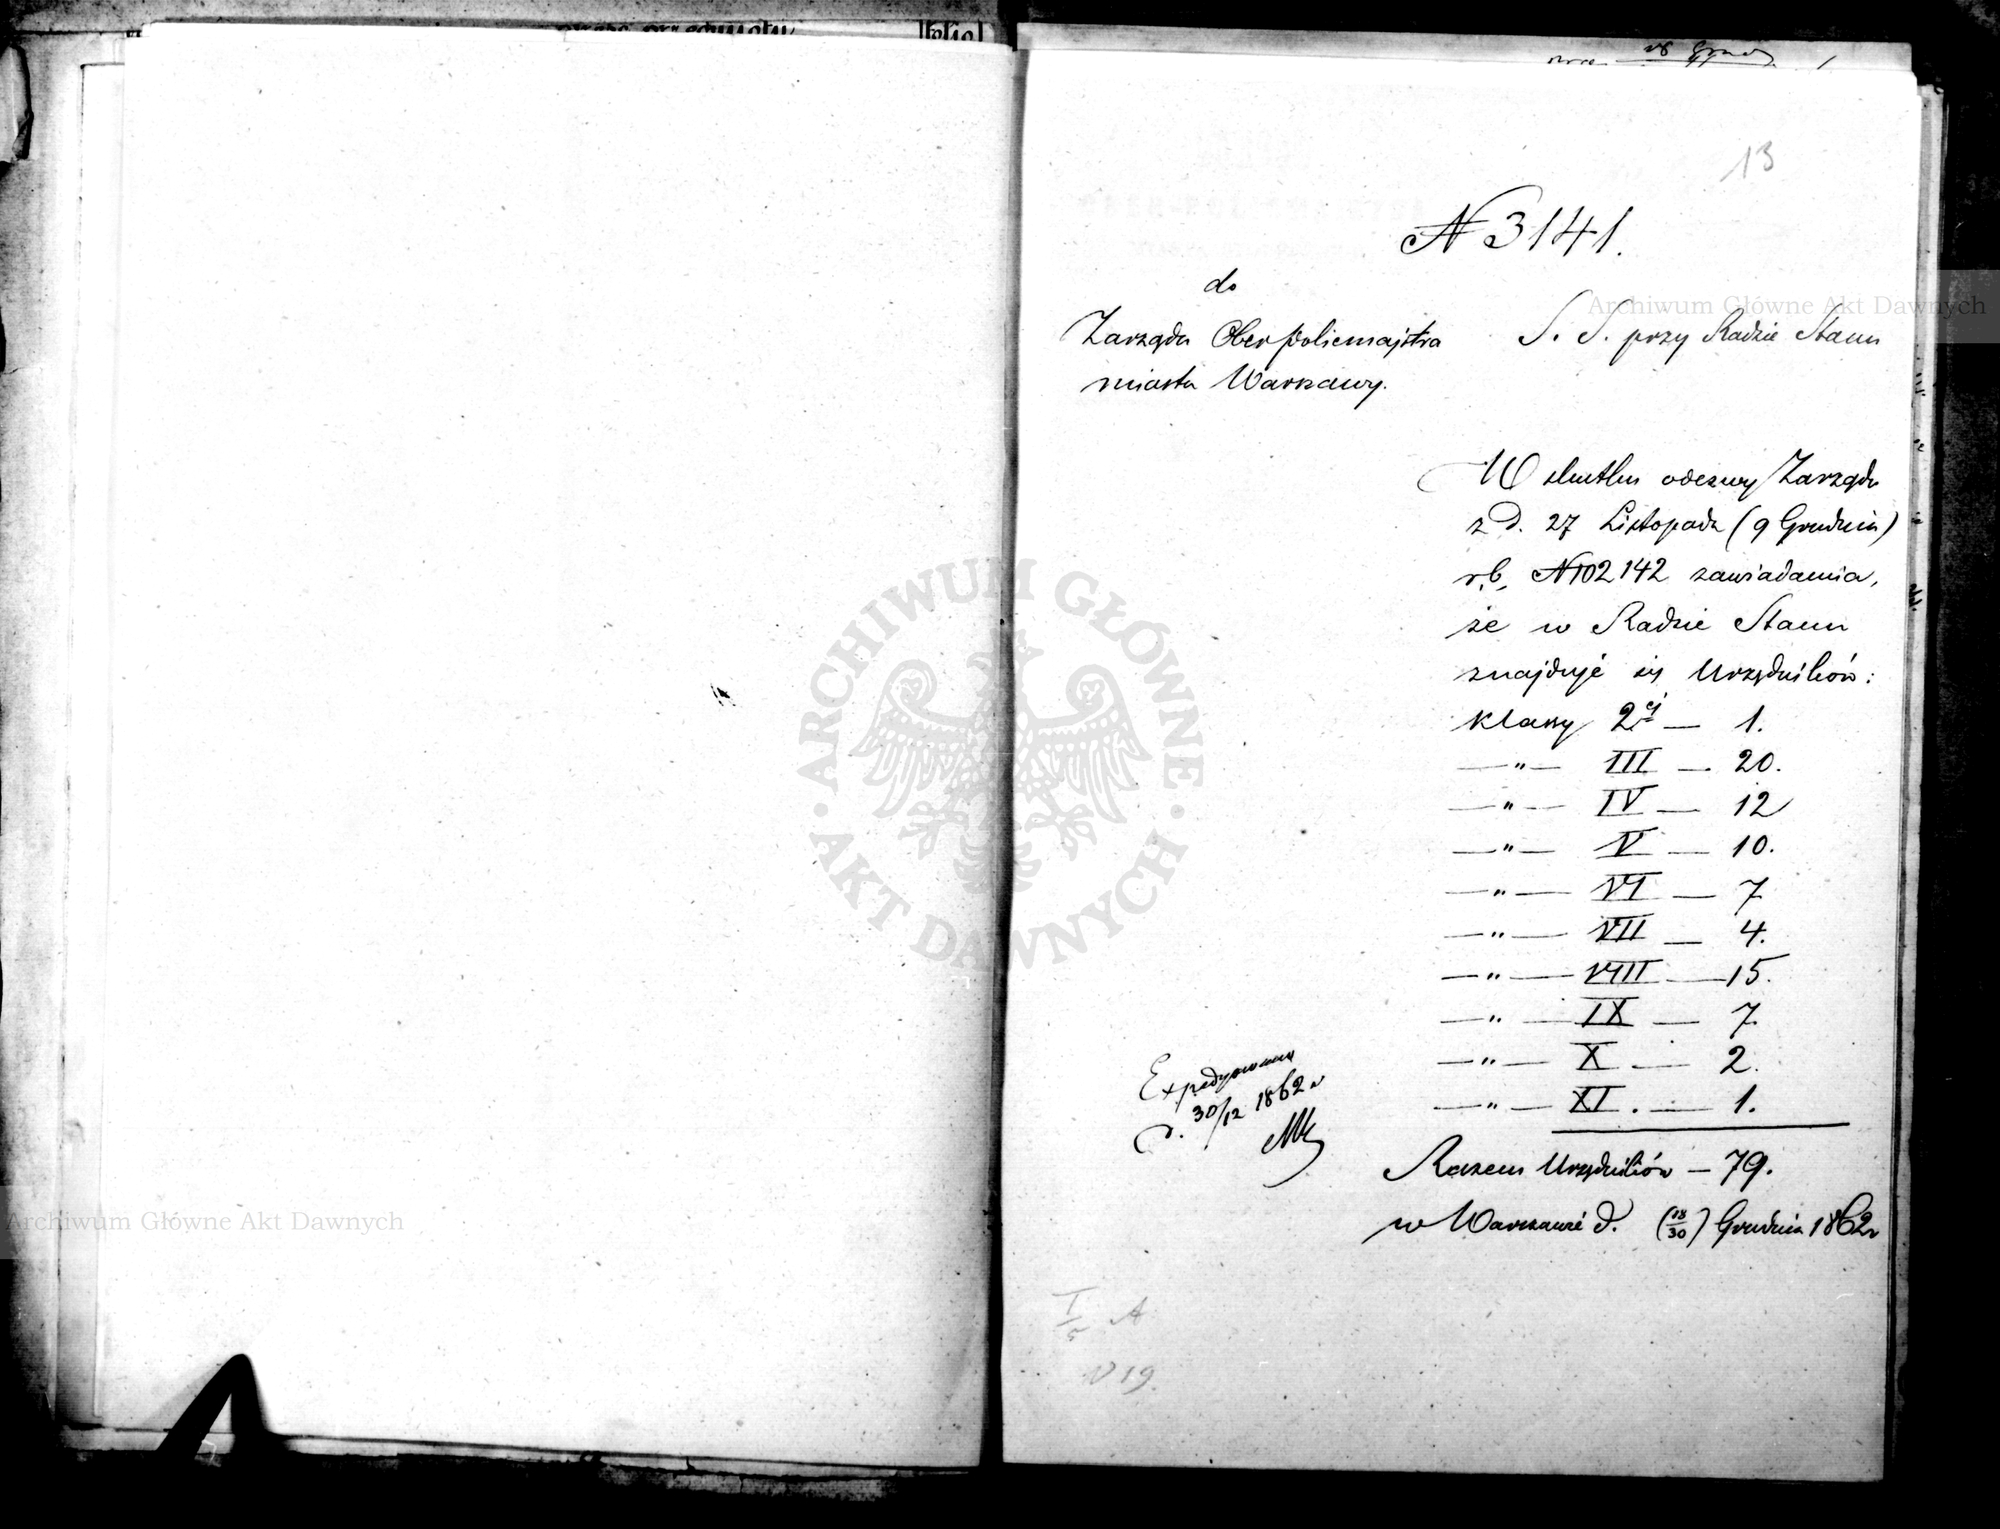 13
N 3141.
do
Zarządu Oberpolicmajstra
miasta Warszawy.
S. S. przy Radzie Stanu
W skutku odezwy Zarządu
z d. 27 Listopada (9 Grudnia)
r. b. N 102142 zawiadamia,
że w Radzie Stanu
znajduje się Urzędników:
klassy 2ej — 1.
—„— III — 20.
—„— IV — 12
—„— V — 10.
—„— VI — 7
—„— VII — 4.
—„— VIII — 15.
—„— IX — 7.
—„— X — 2.
—„— XI. — 1.
Razem Urzędników — 79.
w Warszawie d. (18/30) Grudnia 1862 r
Expedyowano
d. 30/12 1862 r
I/5 A
N 19.
Archiwum Główne Akt Dawnych
Archiwum Główne Akt Dawnych
ARCHIWUM GŁÓWNE · AKT DAWNYCH ·